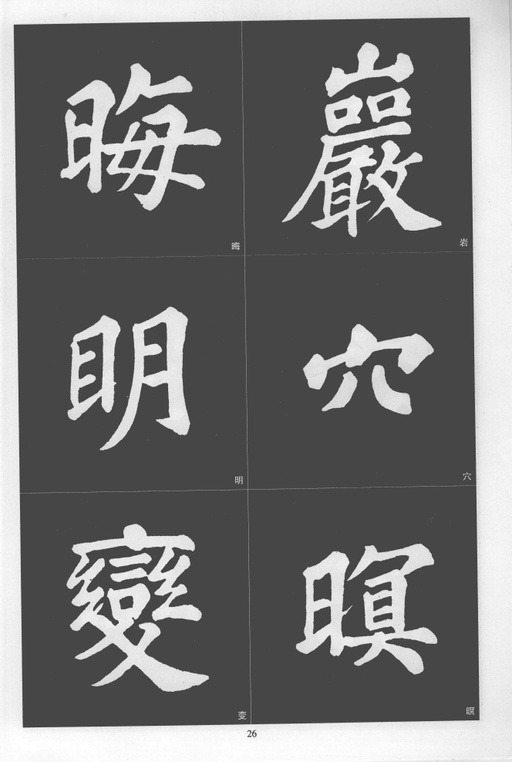 巖穴暝
晦明變
岩
穴
暝
晦
明
变
26